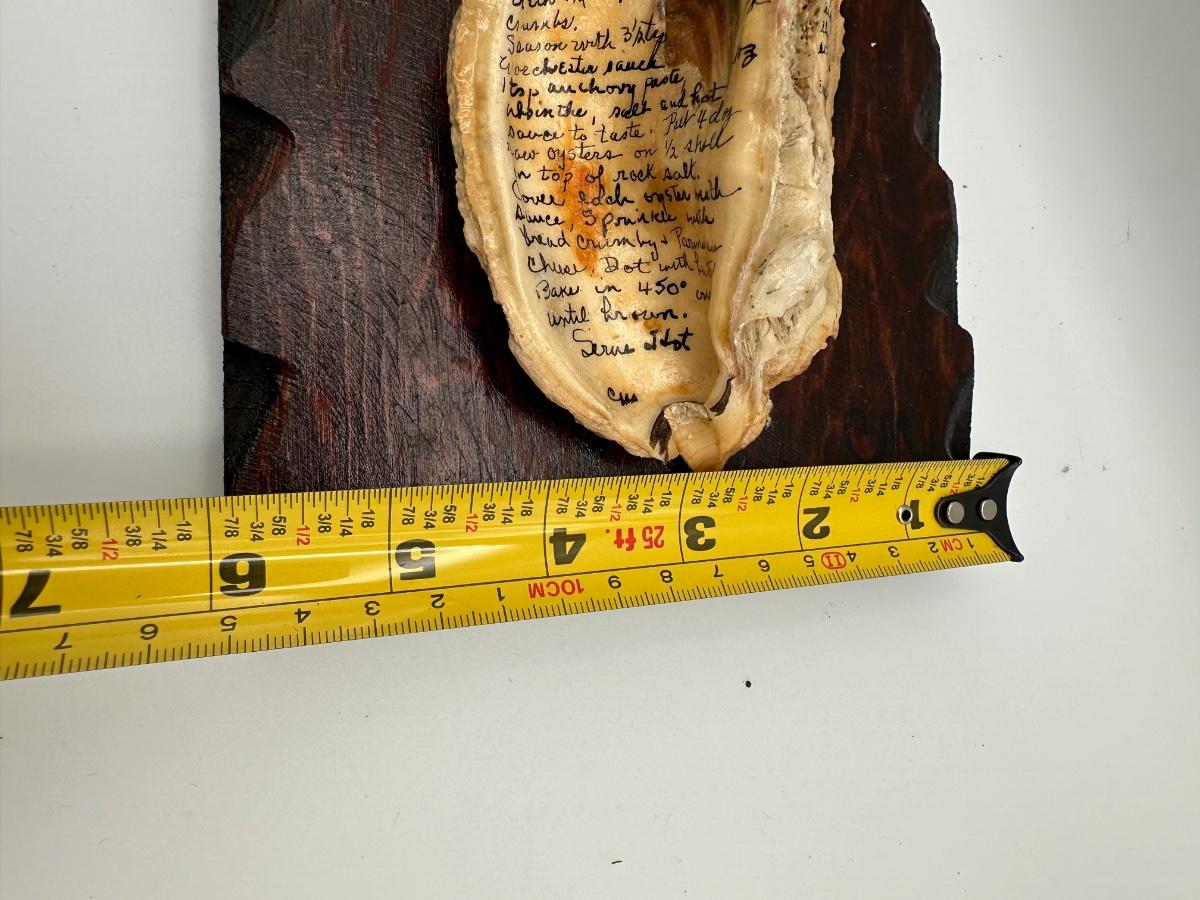 crumbs.
Season with 3 tsp
Worchester sauce
1 tsp anchovy paste,
absinthe, salt and hot
sauce to taste. Put 4 doz
raw oysters on 1/2 shell
on top of rock salt.
Cover each oyster with
sauce, Sprinkle with
bread crumbs + Parmesan
cheese. Dot with butter
Bake in 450°
until brown.
Serve Hot
7 6 5 4 25 ft. 3 2 1
7 6 5 4 3 2 1 10CM 9 8 7 6 5 4 3 2 1 CM